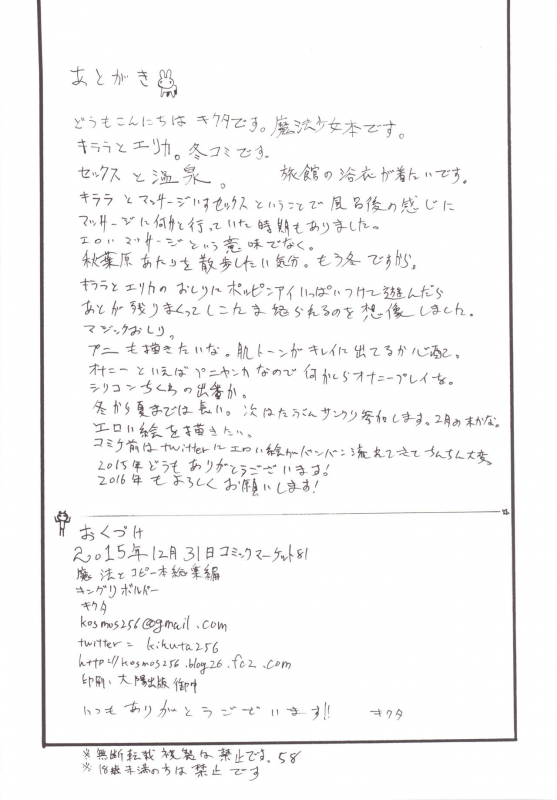 あとがき
どうもこんにちは キクタです。魔法少女本です。
キララとエリカ。冬コミです。
セックスと温泉。 旅館の浴衣が着たいです。
キララとマッサージいすセックスということで風呂後の感じに
マッサージに何かと行っていた時期もありました。
エロいマッサージという意味でなく。
秋葉原あたりを散歩したい気分。もう冬ですから。
キララとエリカのおしりにボルピンアイいっぱいつけて遊んだら
あとが残りまくってしこたま怒られるのを想像しました。
マジックおしり。
プニも描きたいな。肌トーンがキレイに出てるか心配。
オナニーといえばプニャンカなので何かしらオナニープレイを。
シリコンちくわの出番か。
冬から夏までは長い。次はたぶんサンクリ参加します。2月の本かな。
エロい絵を描きたい。
コミケ前はtwitterにエロい絵がバンバン流れてきてちんちん大変
2015年どうもありがとうございます!
2016年もよろしくお願いします!
おくづけ
2015年12月31日コミックマーケット81
魔法とコピー本総集編
キングリボルバー
キクタ
kosmos256@gmail.com
twitter= kikuta256
http://kosmos256.blog26.fc2.com
印刷: 大陽出版 御中
いつもありがとうございます!! キクタ
※無断転載 複製は禁止です。58
※18歳未満の方は禁止です